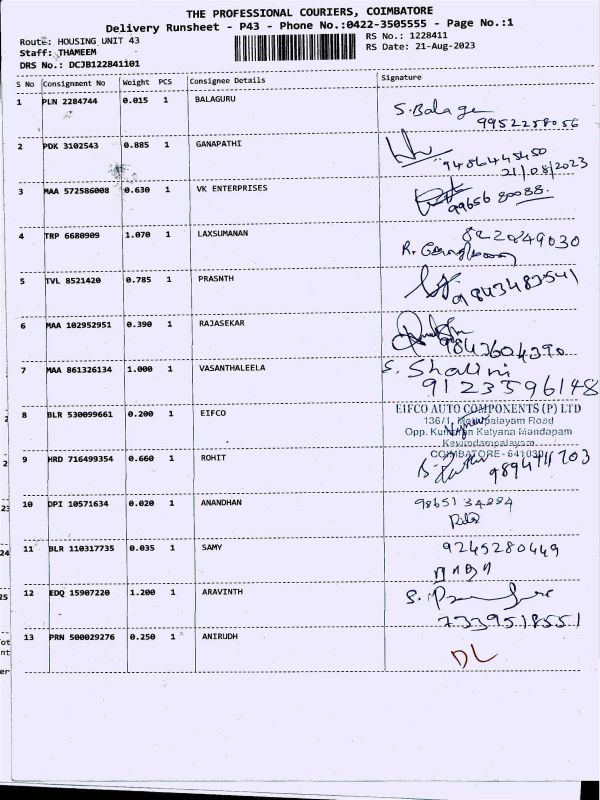 THE PROFESSIONAL COURIERS, COIMBATORE
Delivery Runsheet - P43 - Phone No.:0422-3505555 - Page No.:1
Route: HOUSING UNIT 43
RS No.: 1228411
Staff: THAMEEM
RS Date: 21-Aug-2023
DRS No.: DCJB122841101
S No Consignment No Weight PCS Consignee Details Signature
1 PLN 2284744 0.015 1 BALAGURU S. Balage
9952258056
2 PDK 3102543 0.885 1 GANAPATHI
9486445450
21/08/2023
3 MAA 572586008 0.630 1 VK ENTERPRISES
9965680088.
4 TRP 6680909 1.070 1 LAXSUMANAN 8220849030
R.
5 TVL 8521420 0.785 1 PRASNTH
9843483541
6 MAA 102952951 0.390 1 RAJASEKAR
9843604390
7 MAA 861326134 1.000 1 VASANTHALEELA S. Shalini
9123596148
8 BLR 530099661 0.200 1 EIFCO EIFCO AUTO COMPONENTS (P) LTD
136/1, Road
Opp. Kalyana Mandapam
Kavundampalayam
COIMBATORE - 641030
9 HRD 716499354 0.660 1 ROHIT 9894711703
10 DPI 10571634 0.020 1 ANANDHAN 9865134884
11 BLR 110317735 0.035 1 SAMY 9245280449
12 EDQ 15907220 1.200 1 ARAVINTH S.
7339518551
13 PRN 500029276 0.250 1 ANIRUDH
DL